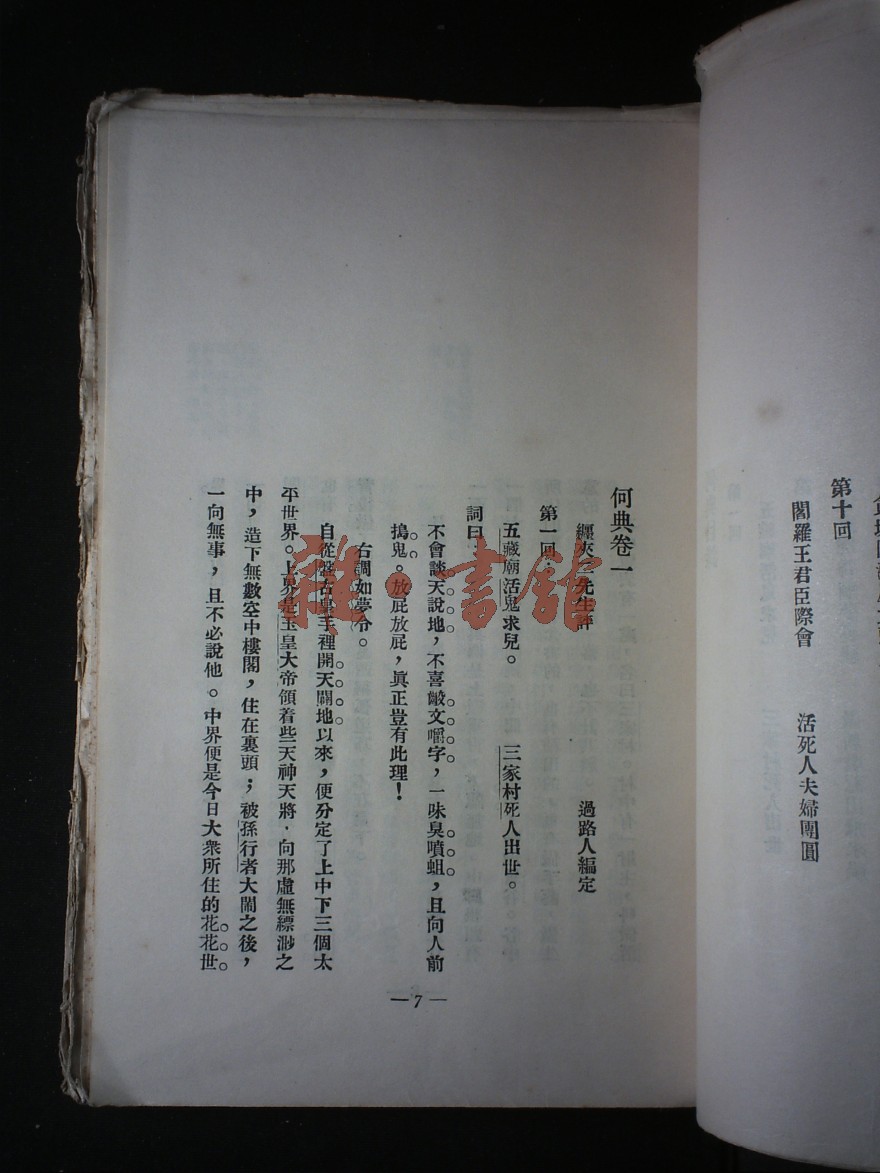 第十回
閻羅王君臣際會 活死人夫婦團圓
何典卷一
纏夾二先生評 過路人編定
第一回
五藏廟活鬼求兒。 三家村死人出世。
詞曰：
不會談天說地，不喜齩文嚼字，一味臭噴蛆，且向人前
搗鬼。放屁放屁，眞正豈有此理！
右調如夢令。
自從盤古皇手裡開天闢地以來，便分定了上中下三個太
平世界。上界是玉皇大帝領着些天神天將，向那虛無縹渺之
中，造下無數空中樓閣，住在裏頭；被孫行者大鬧之後，
一向無事，且不必說他。中界便是今日大衆所住的花花世
— 7 —
雜·書館